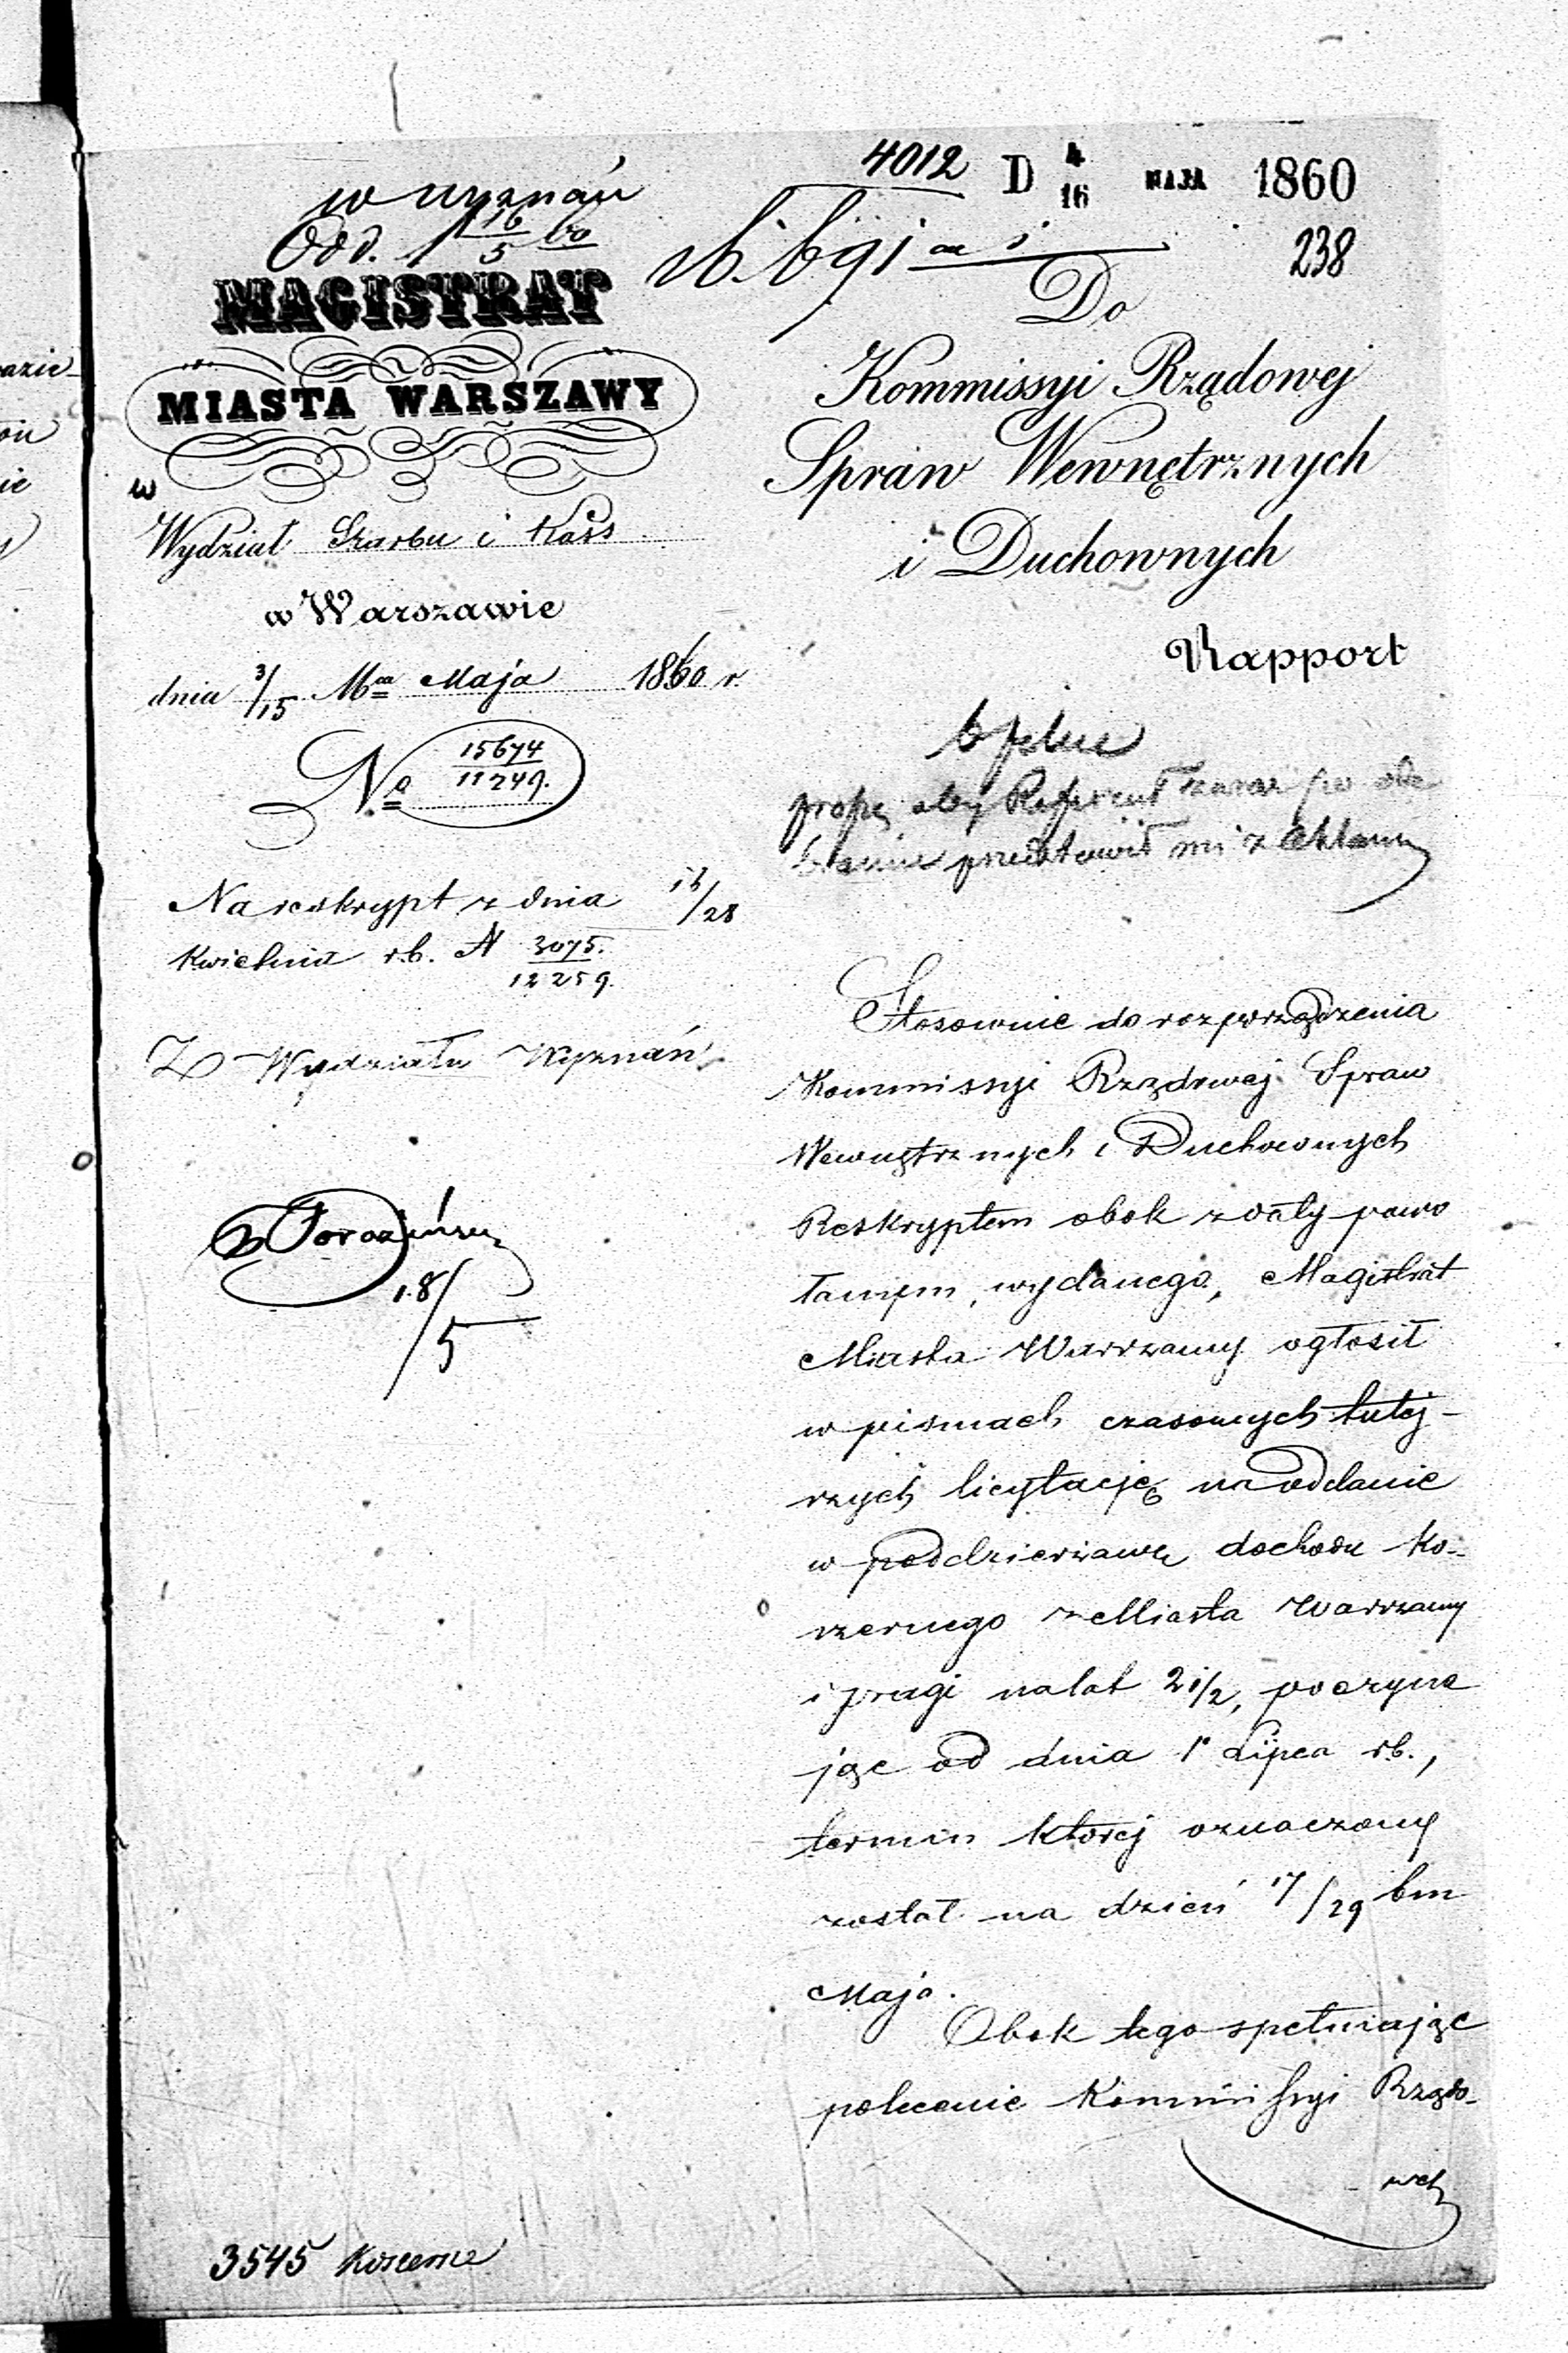 4012 D 4/16 MAJA 1860
238
w wyznań
Odd. 1 16/5 60
MAGISTRAT
MIASTA WARSZAWY
w
Wydział Skarbu i Kass
w Warszawie
dnia 3/15 Mca Maja 1860 r.
No 15674/11249.
Na reskrypt z dnia 16/28
Kwietnia r.b. N 3075./12259.
Z Wydziału Wyznań
18/5
3545 Koszerne
Do
Kommissyi Rządowej
Spraw Wewnętrznych
i Duchownych
Rapport
proszę aby Referent zaraz po
przedstawił mi z aktami
Stosownie do rozporządzenia
Kommissyi Rządowej Spraw
Wewnętrznych i Duchownych
Reskryptem obok z daty powo
łanym, wydanego, Magistrat
Miasta Warszawy ogłosił
w pismach czasowych tutej-
szych licytację na oddanie
w poddzierżawę dochodu ko-
szernego z Miasta Warszawy
i Pragi na lat 2 1/2, poczyna
jąc od dnia 1o Lipca r.b.,
termin której oznaczony
został na dzień 17/29 bm
Maja.
Obok tego spełniając
polecenie Kommissyi Rządo-
wej